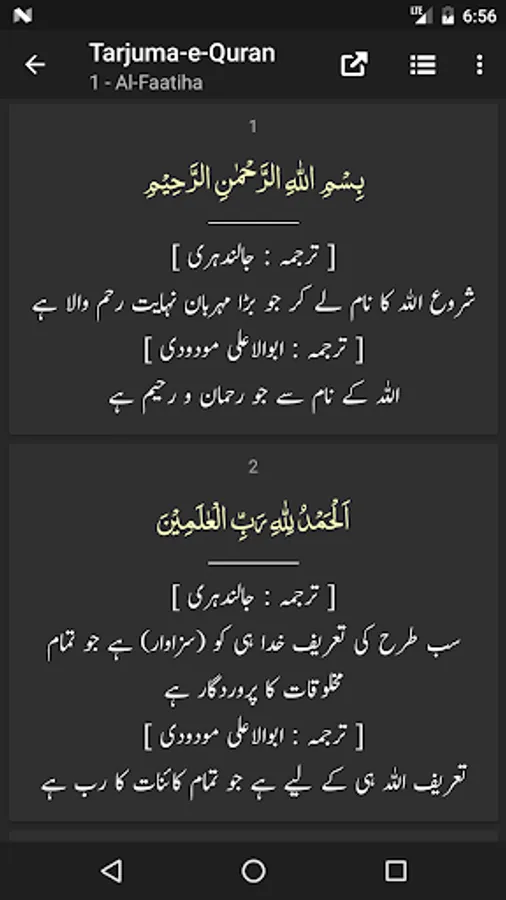 LTE 6:56
Tarjuma-e-Quran
1 - Al-Faatiha
1
بِسْمِ اللّٰهِ الرَّحْمٰنِ الرَّحِيْمِ
[ ترجمہ : جالندہری ]
شروع اللہ کا نام لے کر جو بڑا مہربان نہایت رحم والا ہے
[ ترجمہ : ابوالاعلی مودودی ]
اللہ کے نام سے جو رحمان و رحیم ہے
2
اَلْحَمْدُ لِلّٰهِ رَبِّ الْعٰلَمِيْنَ
[ ترجمہ : جالندہری ]
سب طرح کی تعریف خدا ہی کو (سزاوار) ہے جو تمام
مخلوقات کا پروردگار ہے
[ ترجمہ : ابوالاعلی مودودی ]
تعریف اللہ ہی کے لیے ہے جو تمام کائنات کا رب ہے